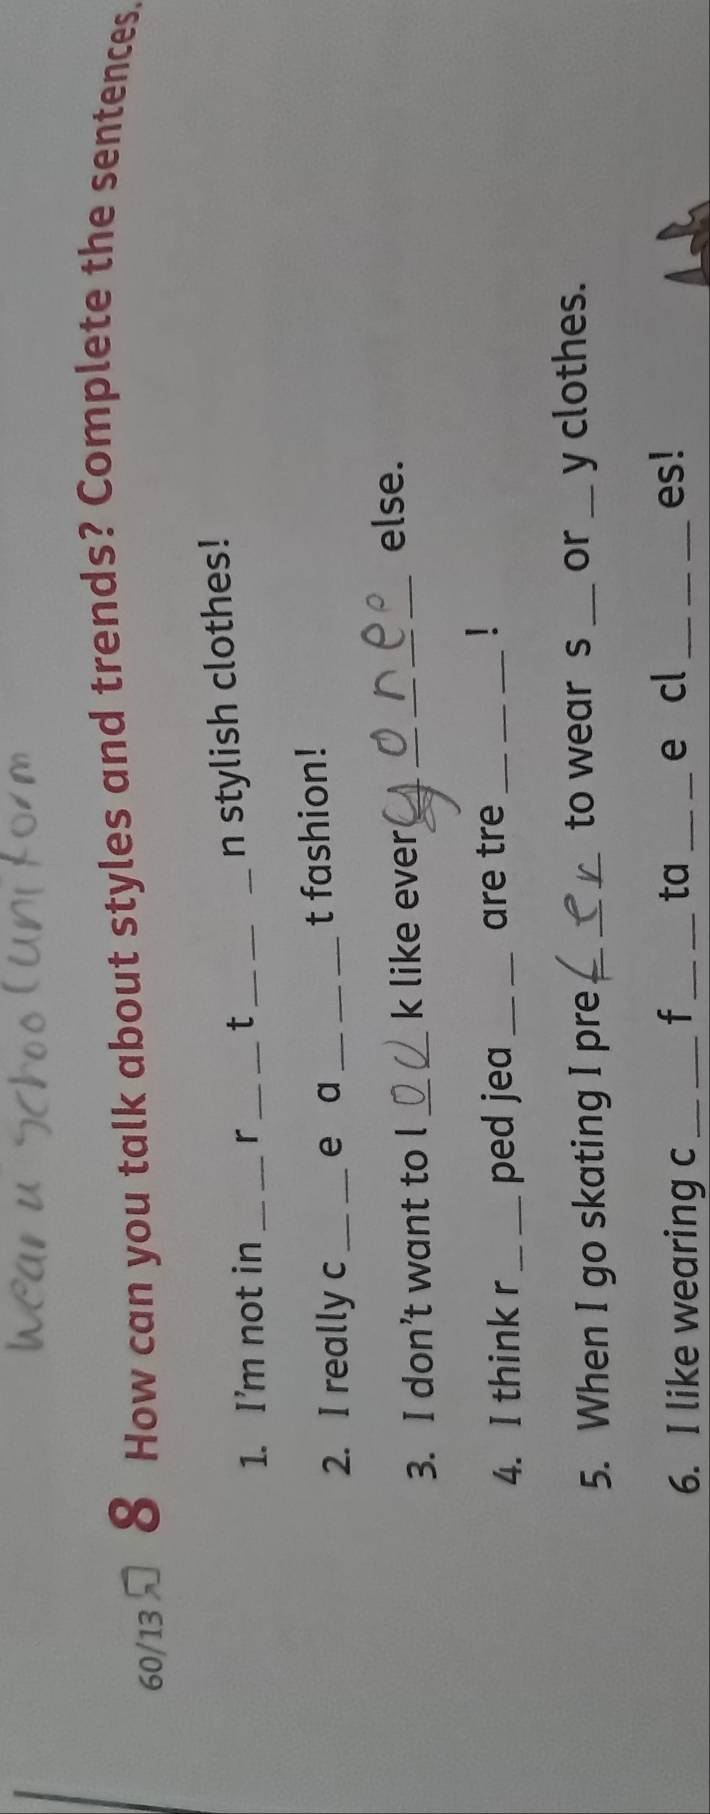 wear a school uniform
60/13 8 How can you talk about styles and trends? Complete the sentences.
1. I'm not in_ _r_ _t_ _ _n stylish clothes!
2. I really c_ _e a_ _ _t fashion!
3. I don't want to look like everyone else.
4. I think r_ _ped jea_ _ are tre_ _ _!
5. When I go skating I prefer to wear s_or_y clothes.
6. I like wearing c_ _f_ _ta_ _e cl_ _ _es!